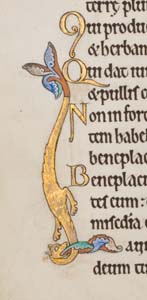 terrę plu
Qui produc
& herbam
Qui dat ium
& pullis c
Non in for
tem habeb
beneplac
Beneplac
tes eum:
Lau
deum tu